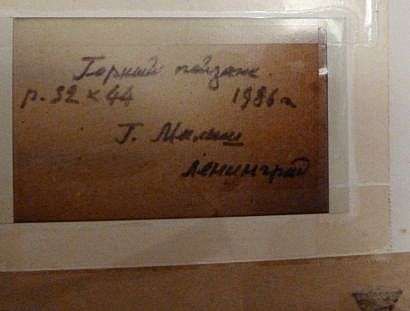 Горный пейзаж
р. 32 х 44 1986 г
Г. Малыш
Ленинград